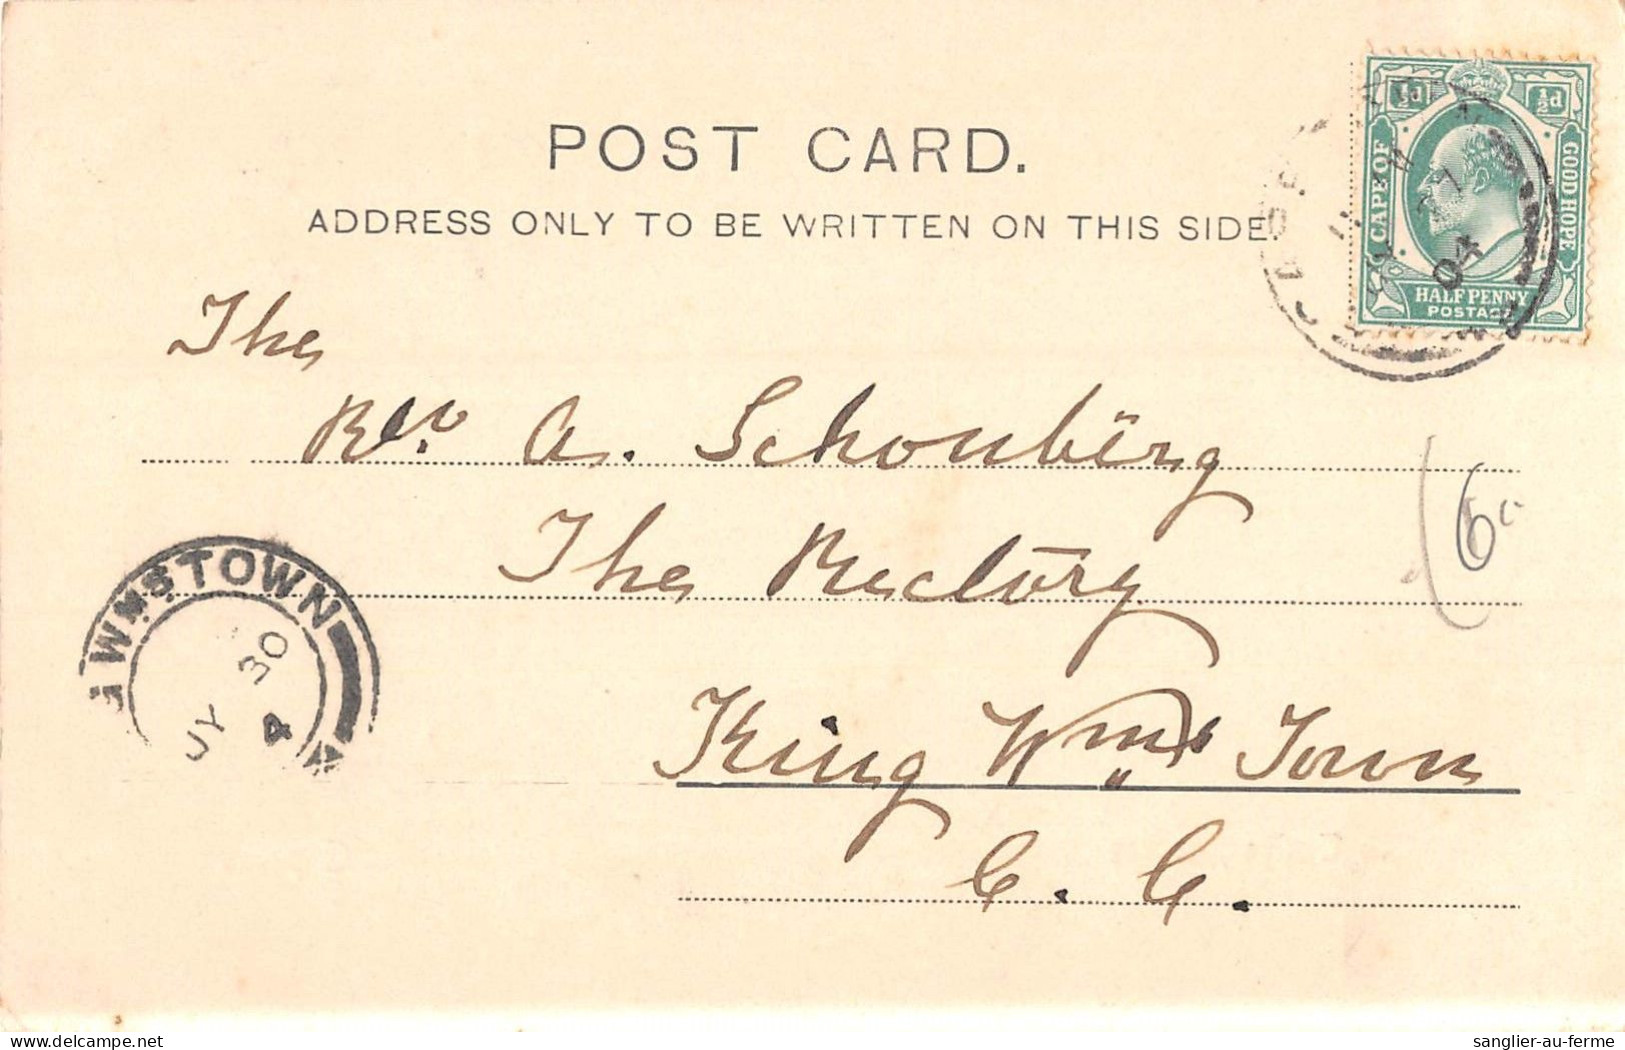 POST CARD.
ADDRESS ONLY TO BE WRITTEN ON THIS SIDE.
½d ½d
CAPE OF GOOD HOPE
HALF PENNY
POSTAGE
04
The
Rev. A. Schonberg
The Rectory
King Wms Town
C. C.
6
WMSTOWN
JY 30
4
sanglier-au-ferme